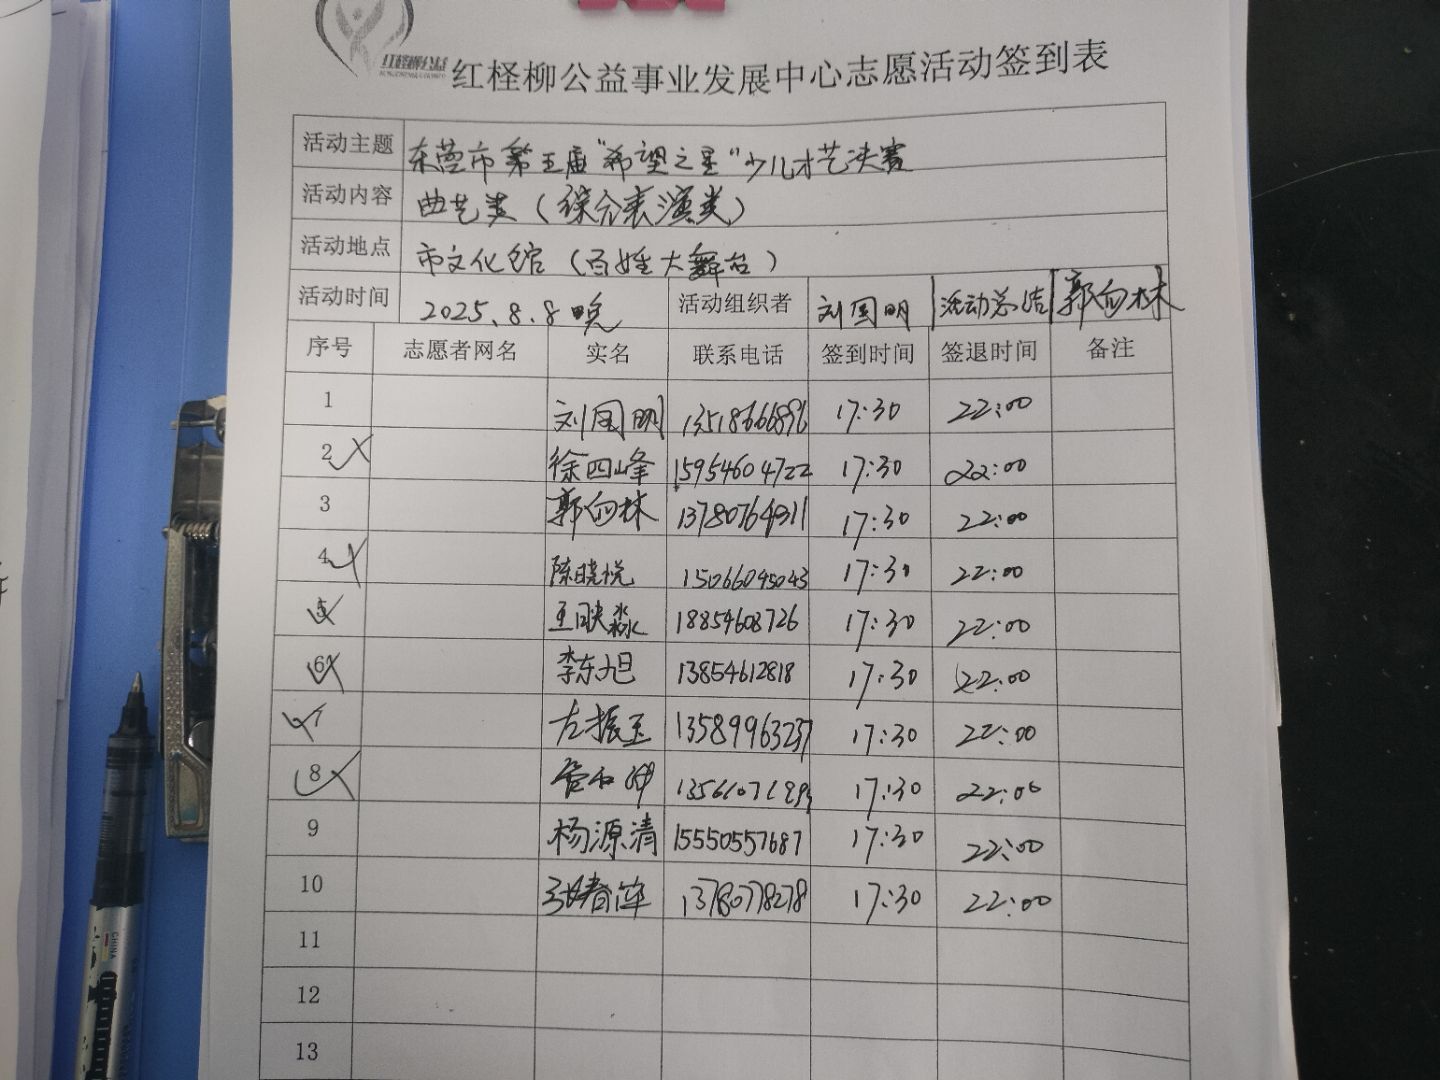 红柽柳公益
红柽柳公益事业发展中心志愿活动签到表
活动主题 东营市第五届“希望之星”少儿才艺决赛
活动内容 曲艺类（综合表演类）
活动地点 市文化馆（百姓大舞台）
活动时间 2025.8.8晚 活动组织者 刘国明 活动总结 郭向林
序号 志愿者网名 实名 联系电话 签到时间 签退时间 备注
1 刘国明 17:30 22:00
2 徐四峰 15954604722 17:30 22:00
3 郭向林 13780764911 17:30 22:00
4 陈晓悦 15066045043 17:30 22:00
5 王映淼 18854608726 17:30 22:00
6 李东旭 13854612818 17:30 22:00
7 左振玉 13589963237 17:30 22:00
8 17:30 22:00
9 杨源清 15550557687 17:30 22:00
10 张春萍 13780778278 17:30 22:00
11
12
13
CHINA